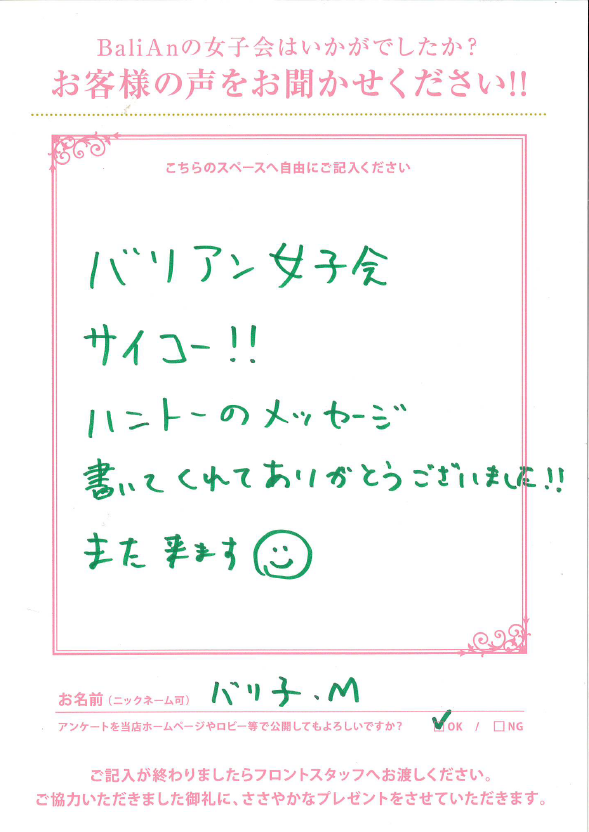 BaliAnの女子会はいかがでしたか?
お客様の声をお聞かせください!!
こちらのスペースへ自由にご記入ください
バリアン女子会
サイコー!!
ハニトーのメッセージ
書いてくれてありがとうございました!!
また来ます
お名前(ニックネーム可) バリ子.M
アンケートを当店ホームページやロビー等で公開してもよろしいですか? ☑OK / □NG
ご記入が終わりましたらフロントスタッフへお渡しください。
ご協力いただきました御礼に、ささやかなプレゼントをさせていただきます。